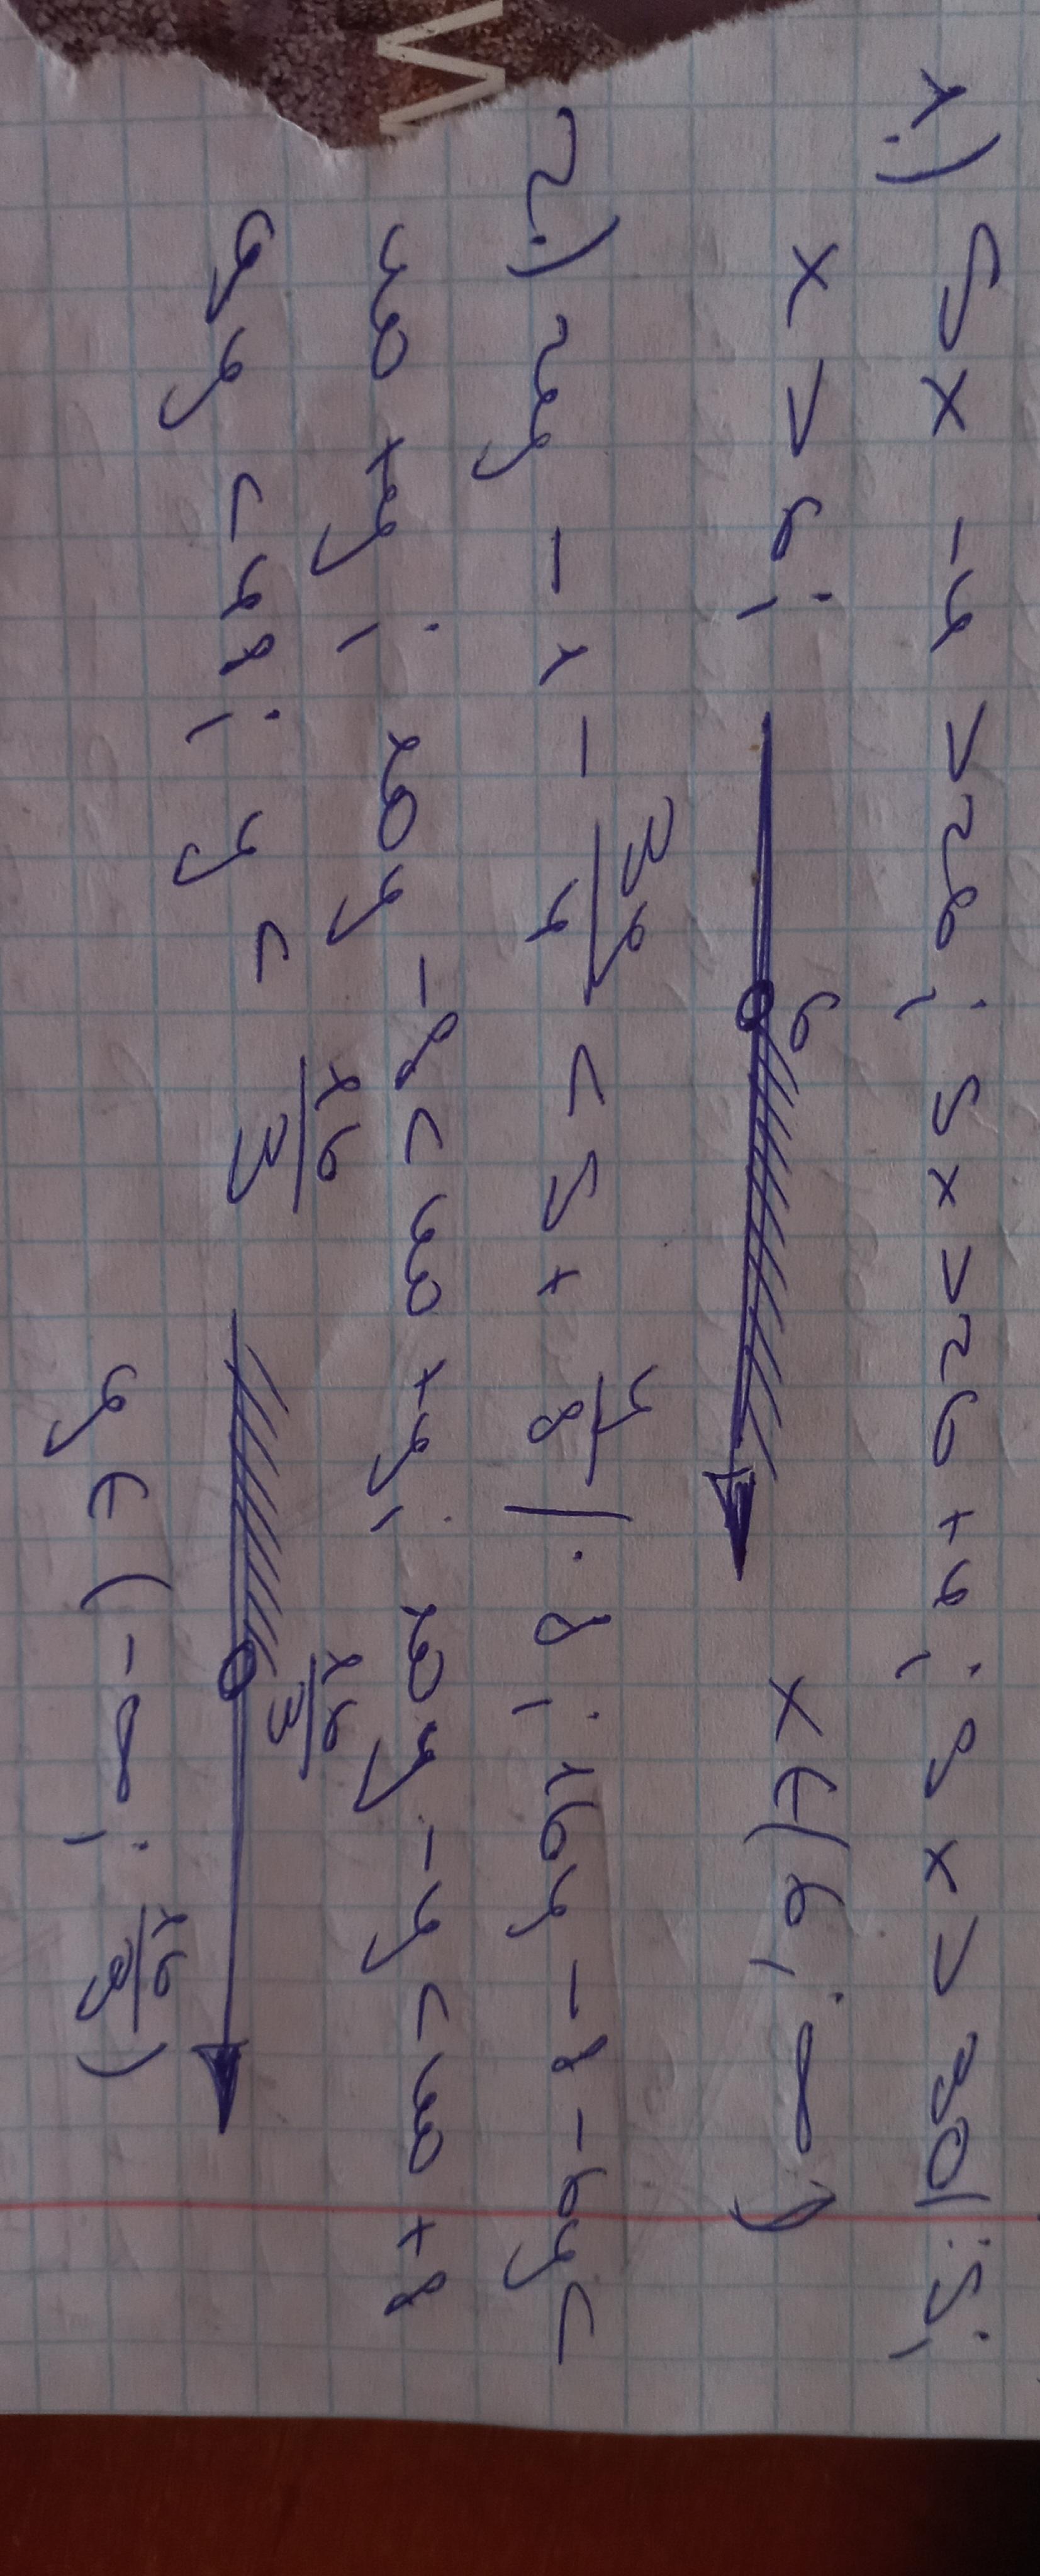 1.) 5x - 4 > 26; 5x > 26 + 4; 5x > 30 |:5;
x > 6; 6 x ∈ (6; ∞)
2.) 2y - 1 - 3y/4 < 5 + y/8 | · 8; 16y - 8 - 6y <
40 + y; 10y - 8 < 40 + y; 10y - y < 40 + 8
9y < 48; y < 16/3 16/3
y ∈ (-∞; 16/3)